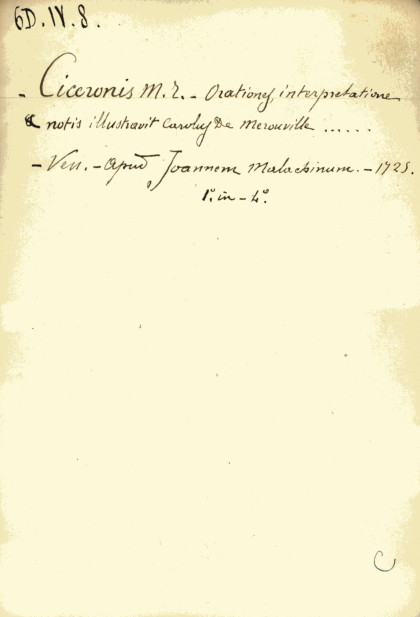 6D.IV.8.
- Ciceronis M. T. - Orationes, interpretatione
& notis illustravit Carolus De Merouville ......
- Ven. - apud Joannem Malachinum. - 1725.
1. in - 4º.
C